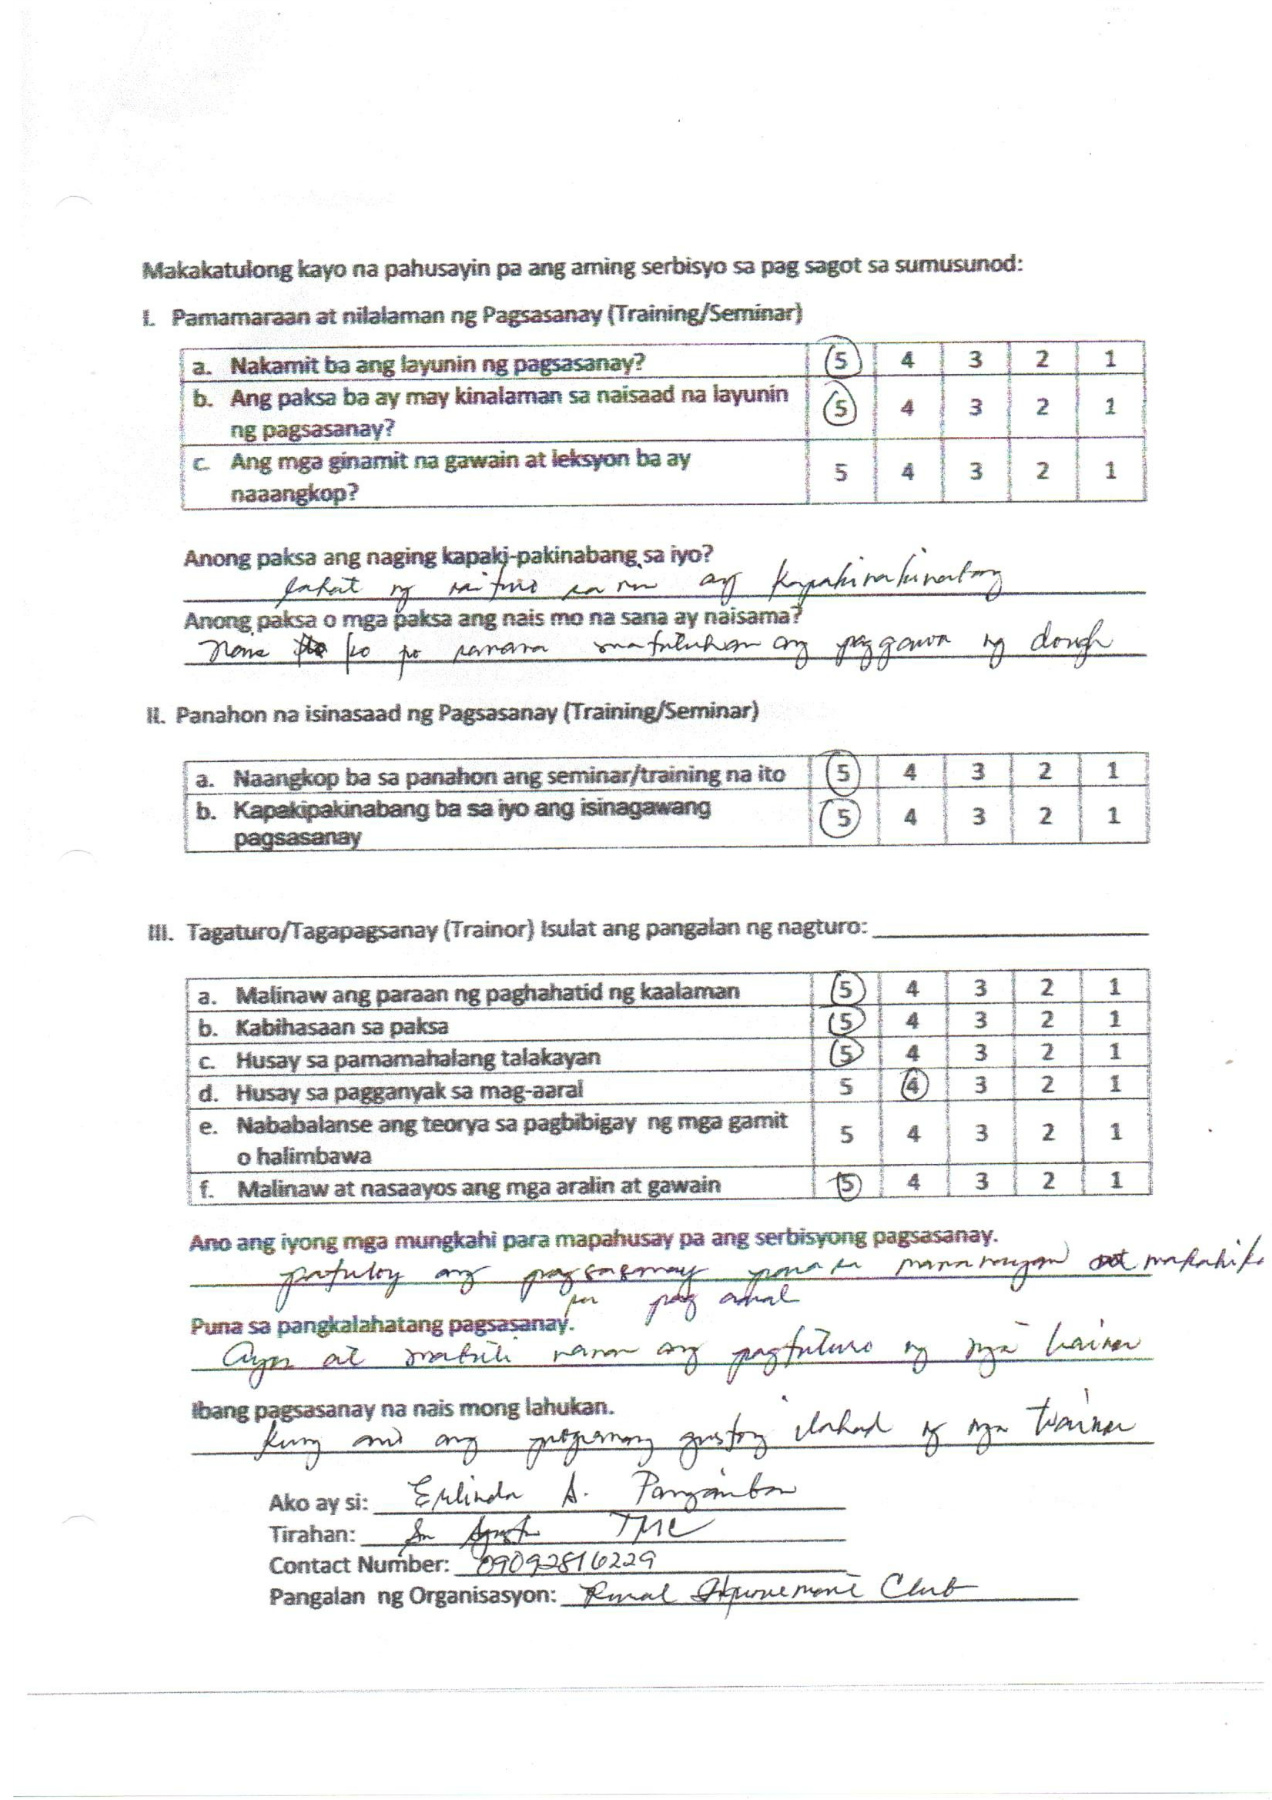 Makakatulong kayo na pahusayin pa ang aming serbisyo sa pag sagot sa sumusunod:
I. Pamamaraan at nilalaman ng Pagsasanay (Training/Seminar)
a. Nakamit ba ang layunin ng pagsasanay? 5 4 3 2 1
b. Ang paksa ba ay may kinalaman sa naisaad na layunin
ng pagsasanay? 5 4 3 2 1
c. Ang mga ginamit na gawain at leksyon ba ay
naaangkop? 5 4 3 2 1
Anong paksa ang naging kapaki-pakinabang sa iyo?
lahat ng ay kapakinakinabang
Anong paksa o mga paksa ang nais mo na sana ay naisama?
ko po sanana matutuhan ang paggawa ng dough
II. Panahon na isinasaad ng Pagsasanay (Training/Seminar)
a. Naangkop ba sa panahon ang seminar/training na ito 5 4 3 2 1
b. Kapakipakinabang ba sa iyo ang isinagawang
pagsasanay 5 4 3 2 1
III. Tagaturo/Tagapagsanay (Trainor) Isulat ang pangalan ng nagturo:
a. Malinaw ang paraan ng paghahatid ng kaalaman 5 4 3 2 1
b. Kabihasaan sa paksa 5 4 3 2 1
c. Husay sa pamamahalang talakayan 5 4 3 2 1
d. Husay sa pagganyak sa mag-aaral 5 4 3 2 1
e. Nababalanse ang teorya sa pagbibigay ng mga gamit
o halimbawa 5 4 3 2 1
f. Malinaw at nasaayos ang mga aralin at gawain 5 4 3 2 1
Ano ang iyong mga mungkahi para mapahusay pa ang serbisyong pagsasanay.
patuloy ang pagsasanay para sa mamamayan
pag aaral
Puna sa pangkalahatang pagsasanay.
Ayos at mabuti naman ang pagtuturo ng mga trainer
Ibang pagsasanay na nais mong lahukan.
Kung ano ang programang gustong ilahad ng mga trainer
Ako ay si: Erlinda A. Panganiban
Tirahan: San Agustin TMC
Contact Number: 09092816229
Pangalan ng Organisasyon: Rural Improvement Club